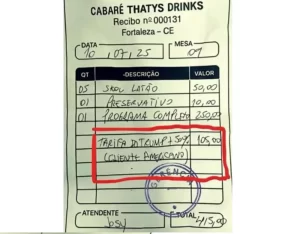 CABARÉ THATYS DRINKS
Recibo nº 000131
Fortaleza - CE
DATA
10, 07, 25
MESA
01
QT -DESCRIÇÃO VALOR
05 SKOL LATÃO 50,00
01 PRESERVATIVO 10,00
01 PROGRAMA COMPLETO 250,00
TARIFA DI TRUMP + 50% 105,00
(CLIENTE AMERICANO)
ATENDENTE
TOTAL 415,00